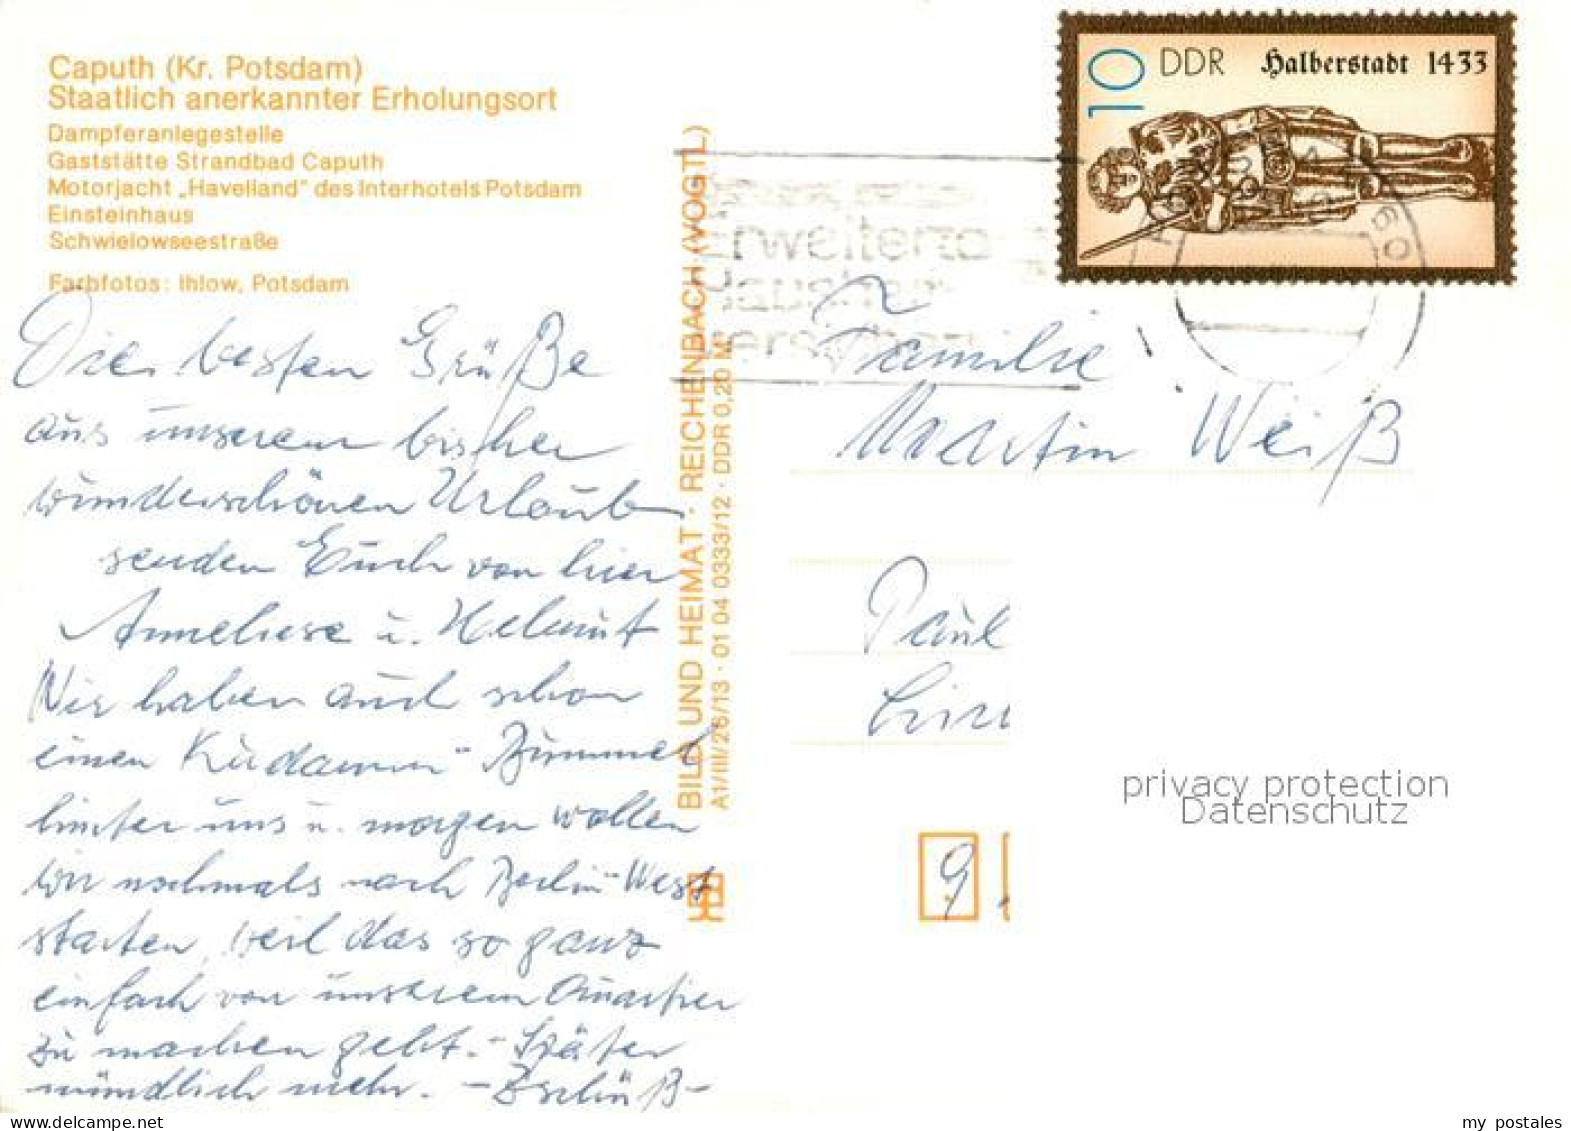 Caputh (Kr. Potsdam)
Staatlich anerkannter Erholungsort
Dampferanlegestelle
Gaststätte Strandbad Caputh
Motorjacht „Havelland" des Interhotels Potsdam
Einsteinhaus
Schwielowseestraße
Farbfotos: Ihlow, Potsdam
Die besten Grüße
aus unserem bisher
wunderschönen Urlaub
senden Euch von hier
Anneliese u. Helmut
Wir haben auch schon
einen Kudamm-Bummel
hinter uns u. morgen wollen
wir nochmals nach Berlin-West
starten, weil das so ganz
einfach von unserem Quartier
zu machen geht. - Später
mündlich mehr. - Tschüß -
BILD UND HEIMAT · REICHENBACH (VOGTL)
A1/III/26/13 · 01 04 0333/12 · DDR 0,20 M
10 DDR Halberstadt 1433
Erweiterte
Haushalt
Familie
Martin Weiß
Paul
9
privacy protection
Datenschutz
my postales
delcampe.net